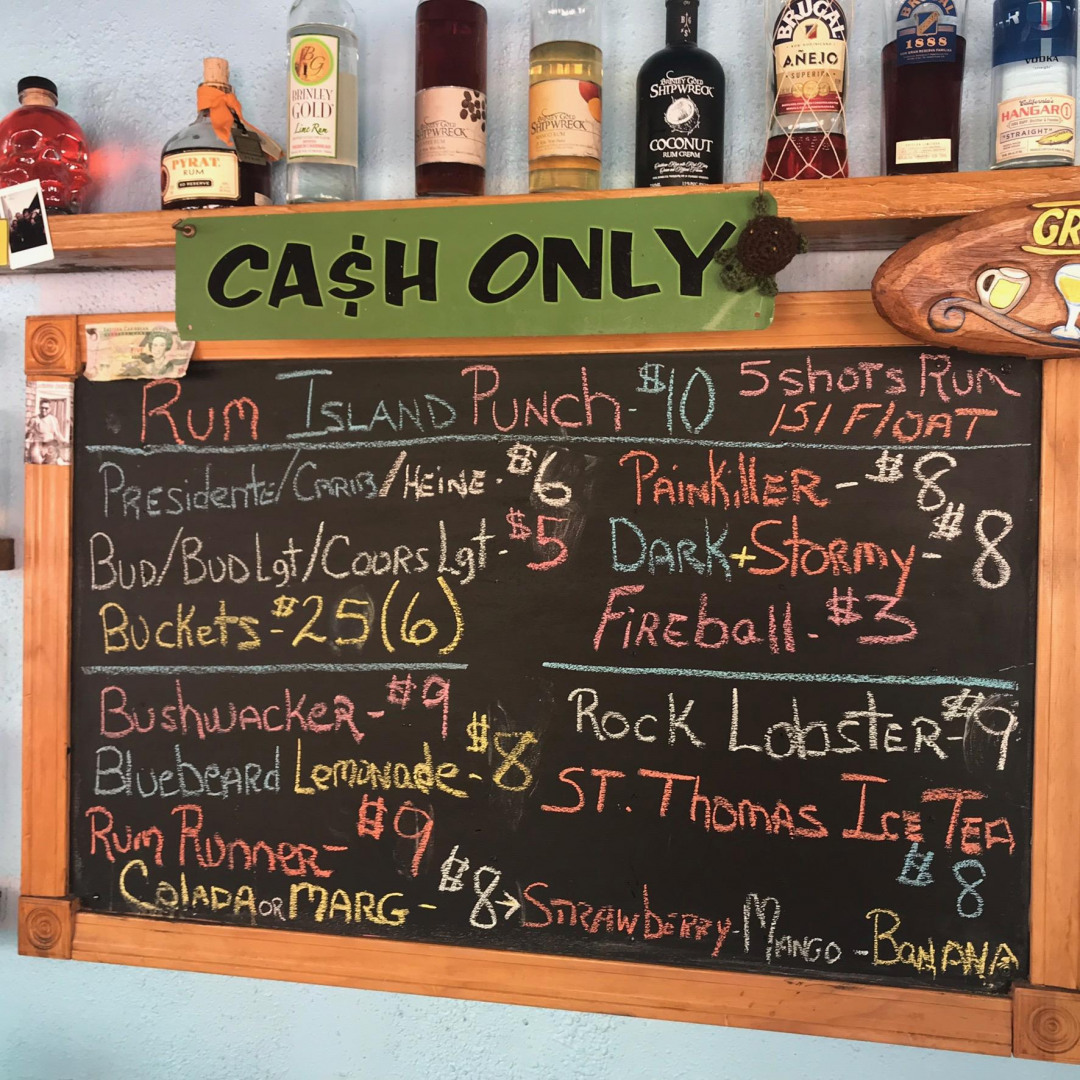 PYRAT
RUM
XO RESERVE
BRINLEY
GOLD
Lime Rum
SHIPWRECK
BRINLEY GOLD
SHIPWRECK
BRINLEY GOLD
SHIPWRECK
COCONUT
RUM CREAM
BRUGAL
AÑEJO
SUPERIOR
BRUGAL
1888
VODKA
HANGAR 1
"STRAIGHT"
CA$H ONLY
GR
RUM ISLAND PUNCH - $10 5 SHOTS RUM
151 FLOAT
PRESIDENTE/CARIB/HEINE - $6
BUD/BUD Lgt/COORS Lgt - $5
BUCKETS - $25 (6)
PAINKILLER - $8
DARK + STORMY - $8
FIREBALL - $3
BUSHWACKER - $9
BLUEBEARD LEMONADE - $8
RUM RUNNER - $9
ROCK LOBSTER - $9
ST. THOMAS ICE TEA
$8
COLADA OR MARG - $8 → STRAWBERRY - MANGO - BANANA